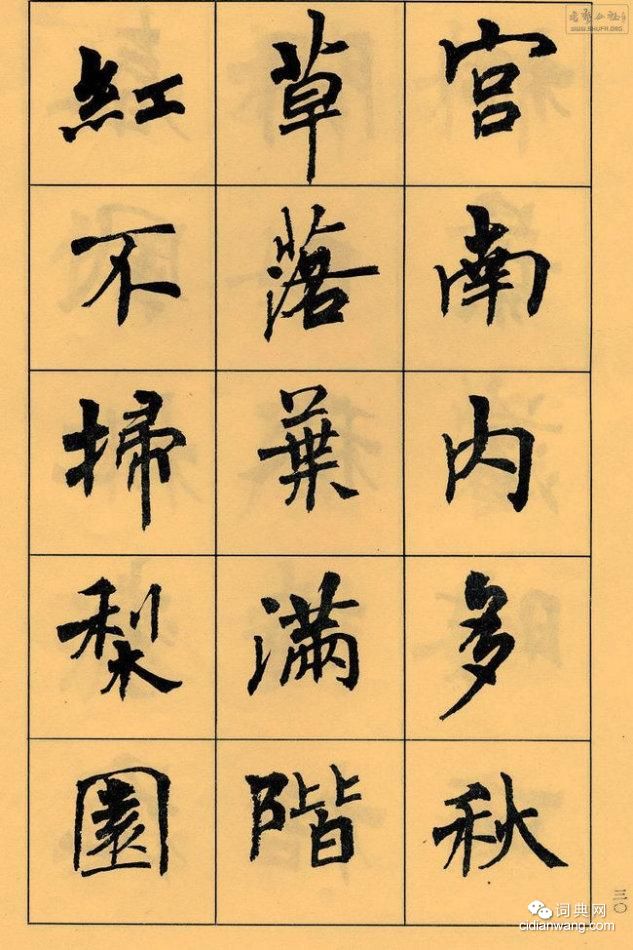 宮南内多秋
草落葉滿階
紅不掃梨園
三〇
WWW.SHUFA.ORG
词典网
cidianwang.com